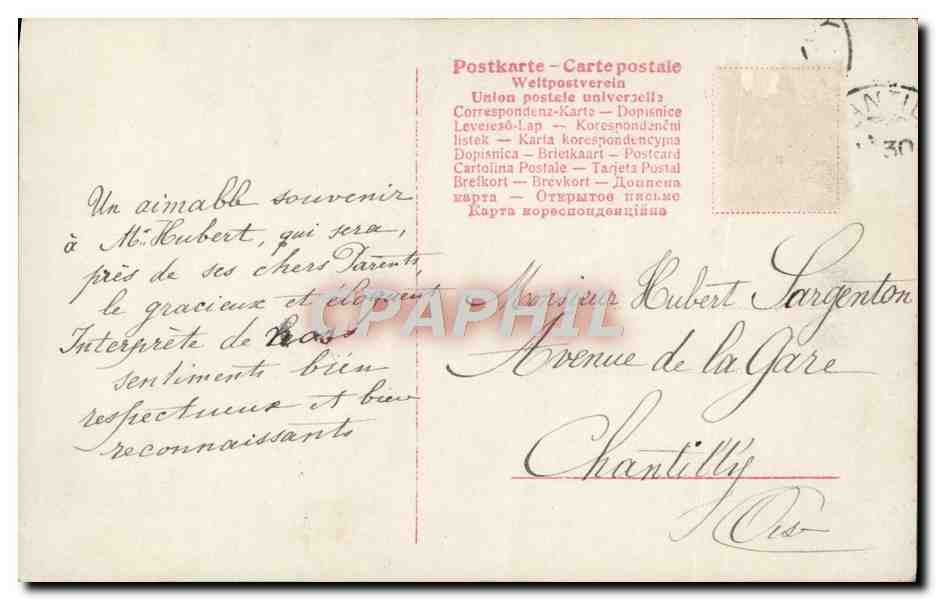 Postkarte – Carte postale
Weltpostverein
Union postale universelle
Correspondenz-Karte — Dopisnice
Levelező-Lap — Korespondenční
listek — Karta korespondencyjna
Dopisnica — Briefkaart — Postcard
Cartolina Postale — Tarjeta Postal
Brefkort — Brevkort — Дописна
карта — Открытое письмо
Карта кореспонденційна
ANTIL
30
Un aimable souvenir
à Mr Hubert, qui sera,
près de ses chers Parents,
le gracieux et éloquent
Interprète de nos
sentiments bien
respectueux et bien
reconnaissants
Monsieur Hubert Sargenton
Avenue de la Gare
Chantilly
Oise
CPAPHIL